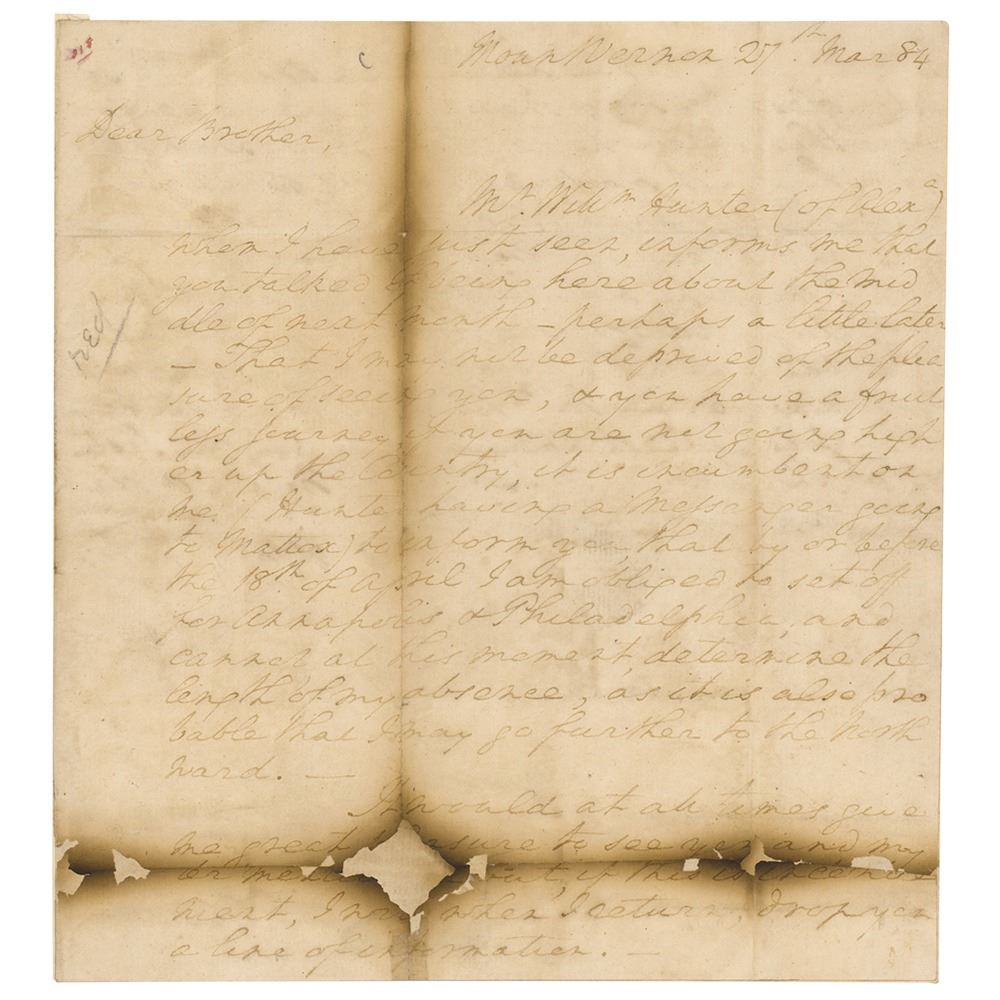 Moun Vernon 27th. Mar 84
Dear Brother,
Mr. Willm Hunter (of Alexa)
whom I have just seen, informs me that
you talked of being here about the mid
dle of next month – perhaps a little later
– That I may not be deprived of the plea
sure of seeing you, & you have a fruit
less journey if you are not going high
er up the Country, it is incumbent on
me (Hunter having a Messenger going
to Mattox) to inform you that by or before
the 18th of April I am obliged to set off
for Annapolis & Philadelphia, and
cannot at this moment determine the
length of my absence, as it is also pro
bable that I may go further to the North
ward. —
It would at all times give
me great pleasure to see you and my
but, if this is
nient, I when I return, drop you
a line of information. —
red